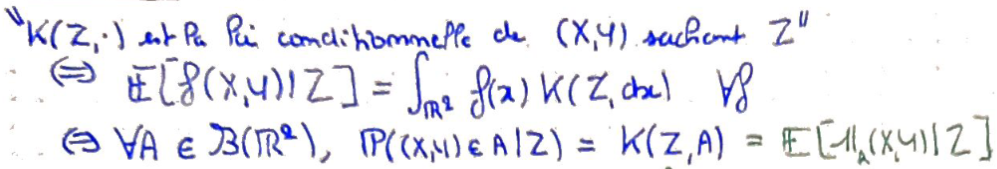 "K(Z,·) est la loi conditionnelle de (X,Y) sachant Z"
⟺ 𝔼[f(X,Y)|Z] = ∫_{ℝ²} f(x) K(Z,dx) ∀f
⟺ ∀A ∈ 𝓑(ℝ²), ℙ((X,Y)∈A|Z) = K(Z,A) = 𝔼[𝟙_A(X,Y)|Z]